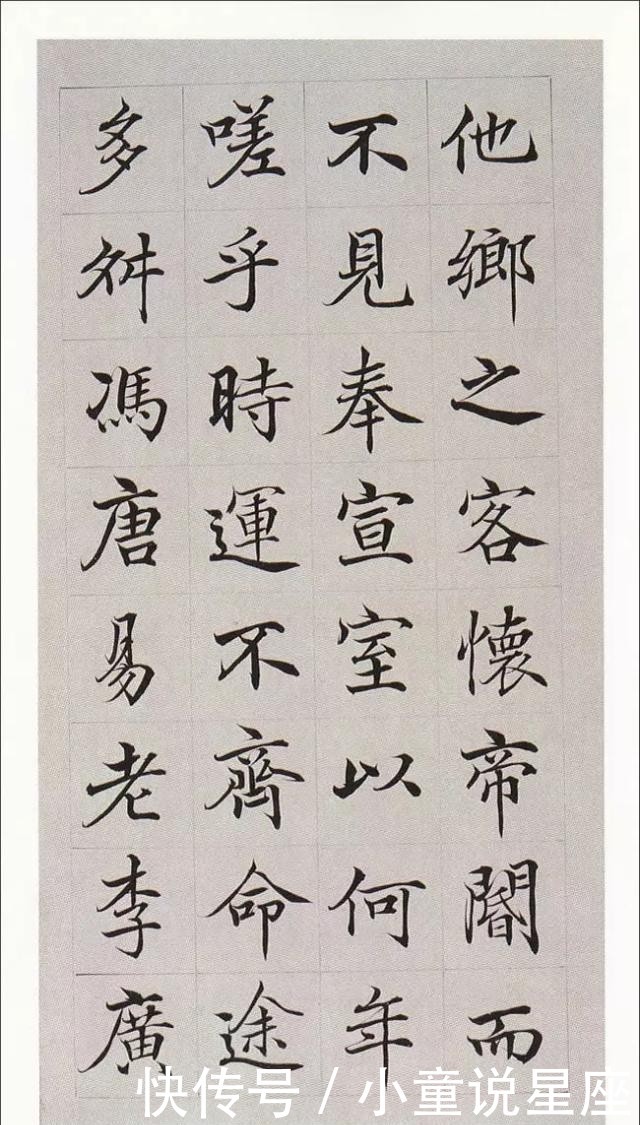 他鄉之客懷帝閽而
不見奉宣室以何年
嗟乎時運不齊命途
多舛馮唐易老李廣
快传号 / 小童说星座